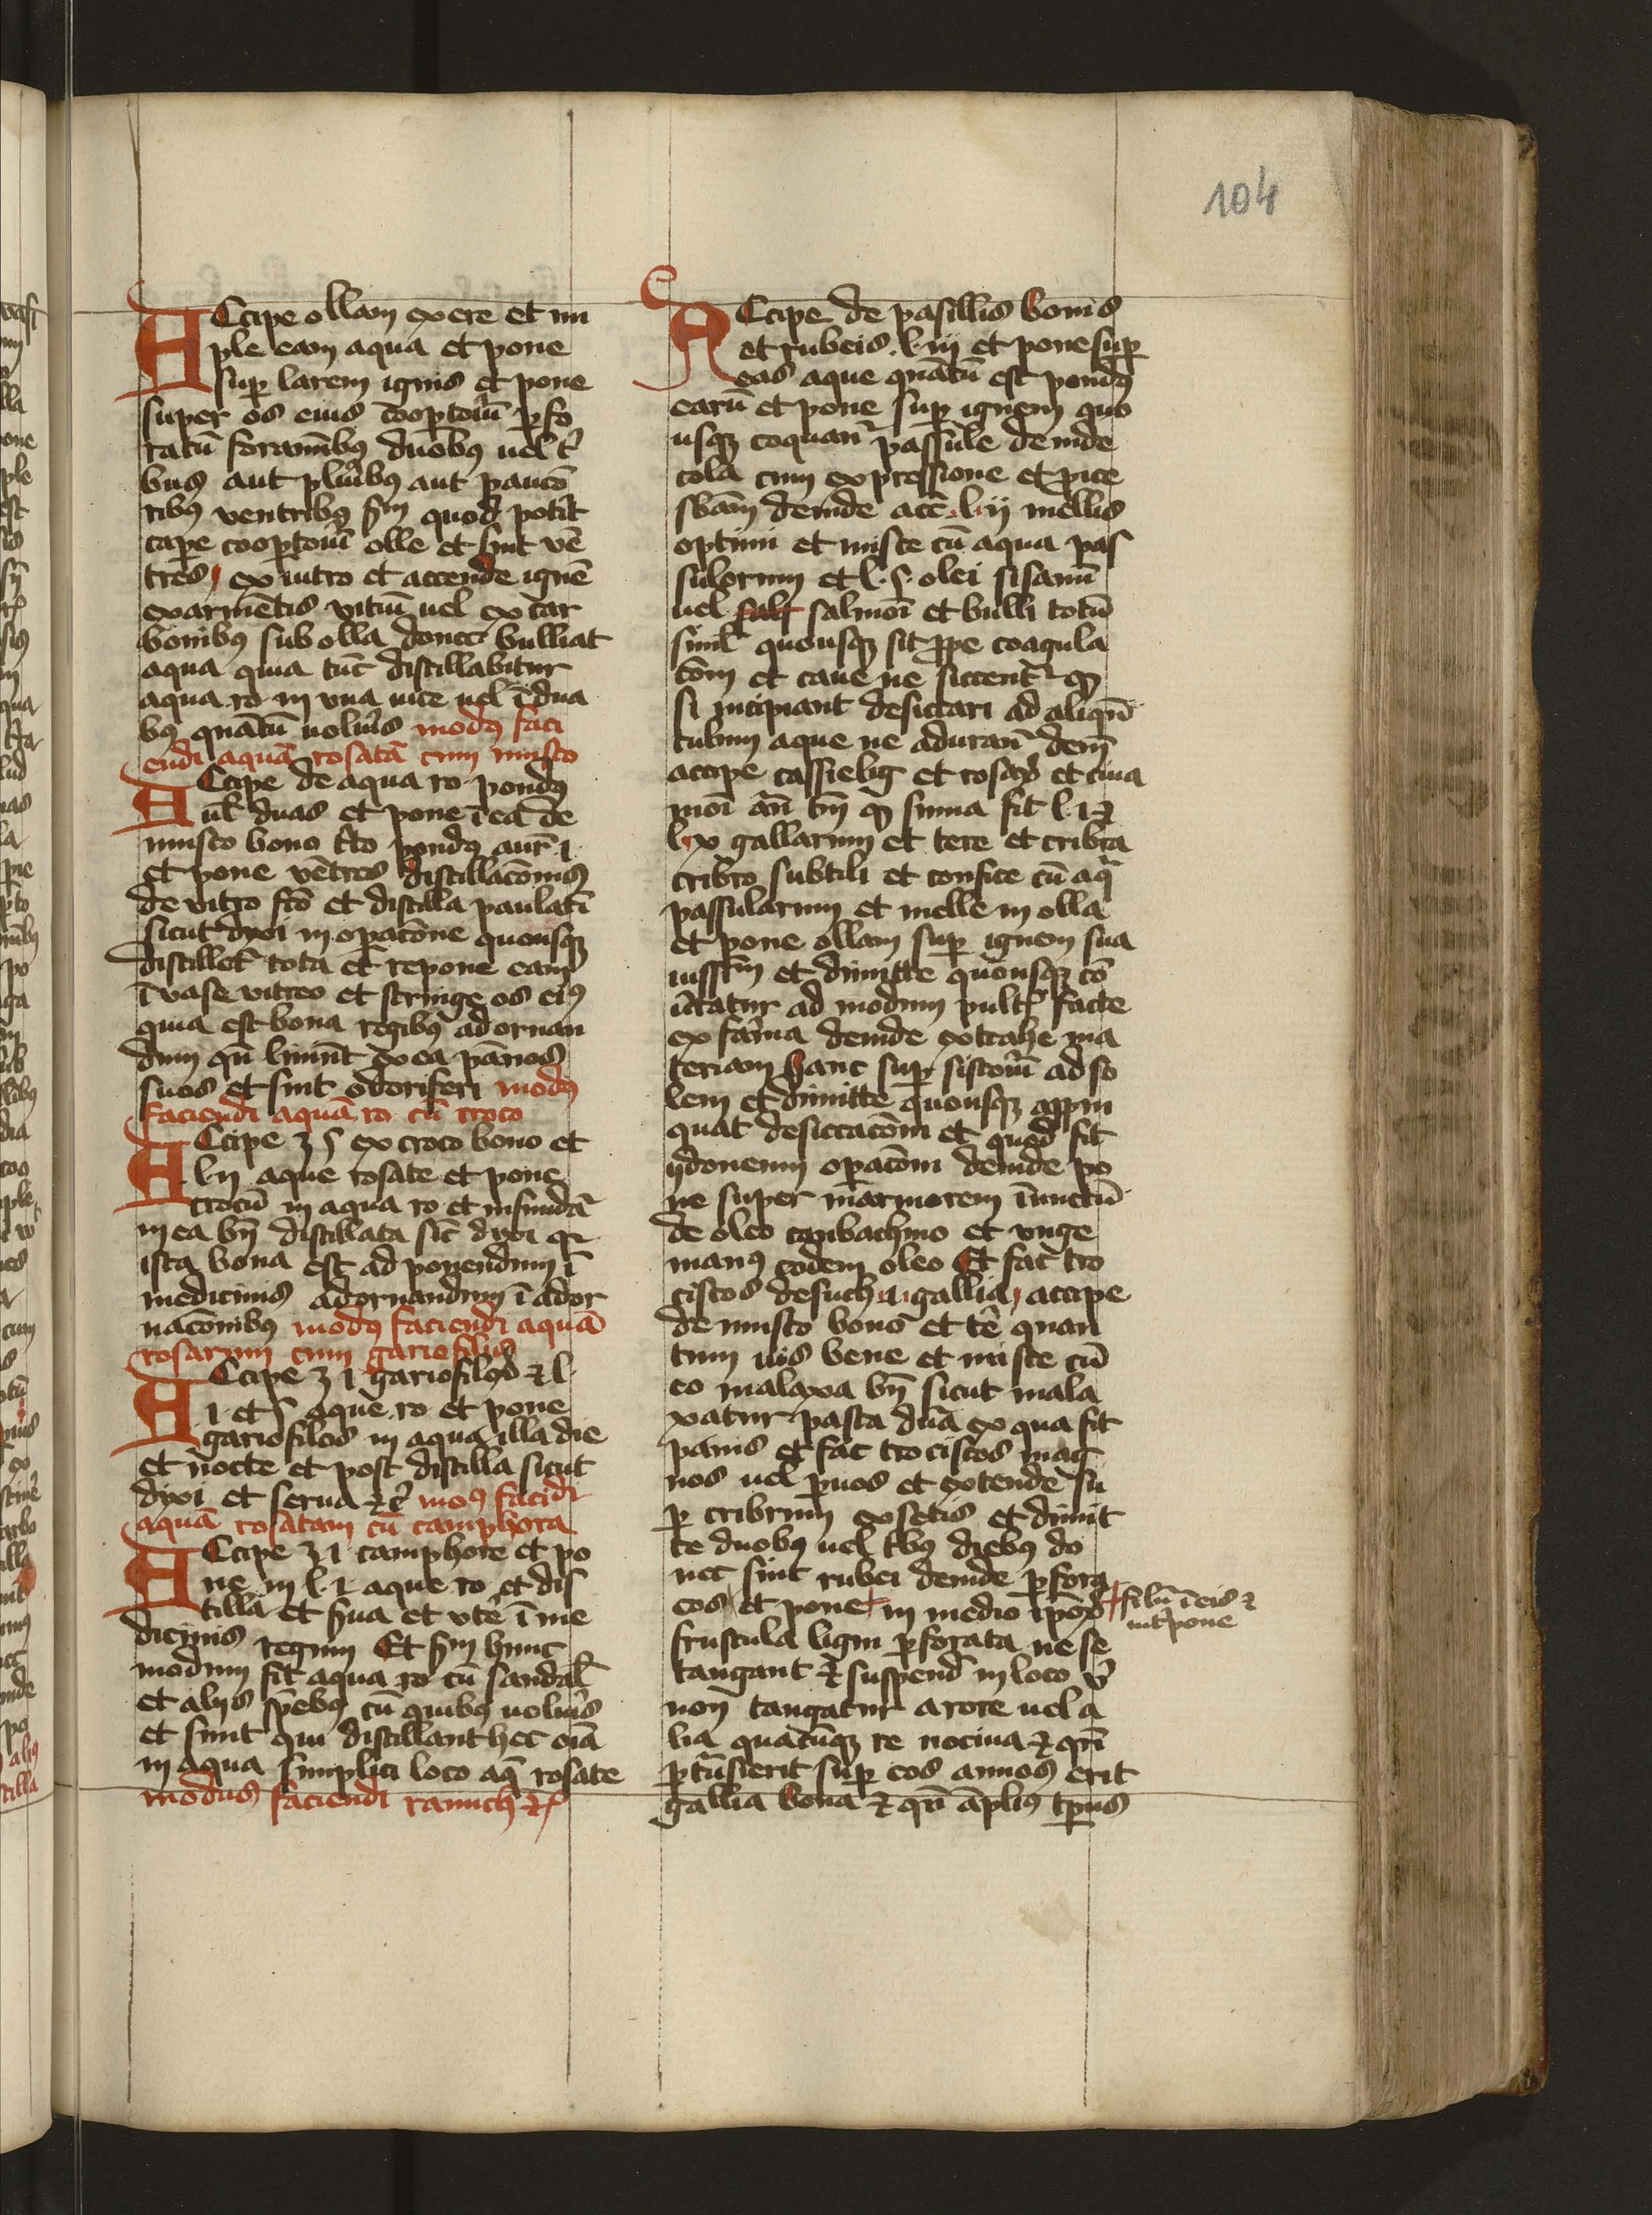 104
Accipe ollam ex ere et im
ple eam aqua et pone
sup larem ignis et pone
super os eius cooptoriū pfo
ratū foraminibꝫ duobꝫ uel t'
bus aut pluribꝫ aut paucio
ribꝫ ventribꝫ scdm quod potit
cape cooptoriū olle et sint vē
tres ex uitro et accende ignē
ex armētis vitiū uel ex car
bonibꝫ sub olla donec bulliat
aqua quia tūc distillabitur
aqua ro in vna uice uel ī dua
bꝫ quātū uolueris modꝫ faci
endi aquā rosatā cum musco
Accipe de aqua ro pondꝫ
ul duas et pone ī ea de
musco bono t'to pondꝫ aur ı
et pone vētres distillacōnis
de vitro fco et distilla paulatī
sicut dyxi in opacōne quousqꝫ
distillet' tota et repone eam
ī vase vitreo et stringe os eiꝫ
quia est bona regibꝫ ad ornan
dum qn̄ liniūt ex ea pānos
suos et sint odoriferi modꝫ
faciendi aquā ro cū croco
Accipe ʒ s ex croco bono et
l ij aque rosate et pone
crocū in aqua ro et infundat'
in ea bn̄ distillata sic dyxi qr
ista bona est ad ponendum ī
medicinis adornandum ī ador
nacōnibꝫ modꝫ faciendi aquā
rosarum cum gariofilis
Accipe ʒ ı gariofiloꝝ et l
ı et s aque ro et pone
gariofilos in aqua illa die
et nocte et post distilla sicut
dyxi et serua etc̄ modꝫ faciēdi
aquā rosatam cū camphora
Accipe ʒ ı camphore et po
ne in l ı aque ro et dis
tilla et serua et vtē ī me
dicinis regum Et scdm hunc
modum fit aqua ro cū sandal'
et alijs spebꝫ cū quibꝫ uolueris
et sunt qui distillant hec oīa
in aqua simplici loco aq̄ rosate
modus faciendi ramich etc̄
Accipe de pasillis bonis
et rubeis l iij et pone sup
eas aque quātū est pondꝫ
earū et pone sup ignem quo
usqꝫ coquant' passule deinde
cola cum expressione et pice
sbām deinde acc̄ l ij mellis
optimi et misce cū aqua pas
sulorum et l s olei sisami
uel salmoī et bulli totū
simł quousqꝫ sit ꝓpe coagula
cōm et caue ne siccent' qꝫ
si incipiant desiccari ad aliqd'
tubum aque ne adurant' dein
accipe cassielig et rosaꝝ et cina
moī an̄ bn̄ qꝫ suma sit l ı et
l x gallarum et tere et cribra
cribro subtili et confice cū aq̄
passularum et melle in olla
et pone ollam sup ignem sua
uissim et dimitte quousqꝫ cō
uertatur ad modum pult' facte
ex farina deinde extrahe ma
teriam hanc sup sistoriū ad so
lem et dimitte quousqꝫ appin
quat desiccacōni et quod sit
ydoneum opacōni deinde po
ne super marmorem īunctū
de oleo canbachino et vnge
manꝫ eodem oleo Et fac tro
ciscos de such ı gallia accipe
de musco bono et te' quan
tum uis bene et misce cū
eo malaxa bn̄ sicut mala
xatur pasta dura ex qua fit
panis et fac trociscos mag
nos uel puos et extende su
p cribrum ex setis et dimit
te duobꝫ uel t'bꝫ diebꝫ do
nec sint rubei deinde pfora
eos et pone in medio ipoꝝ
filū ī eis et
int'pone
frustula ligni pforata ne se
tangant et suspend' in loco ubi
non tangatur a rore uel a
lia quacūqꝫ re nociua et qn̄
ptūsierit sup eos annoꝫ erit
gallia bona et qn̄ āpliꝫ tpus